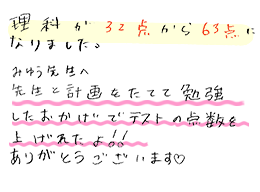 理科が32点から63点に
なりました。
みゅう先生へ
先生と計画をたてて勉強
したおかげでテストの点数を
上げれたよ!!
ありがとうございます♡